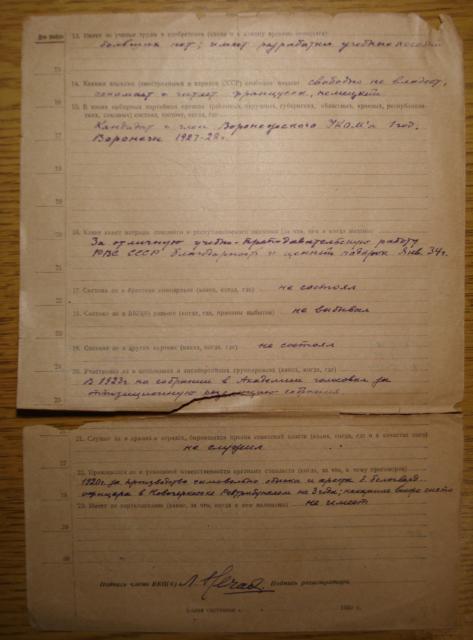 13. Имеет ли ученые труды и изобретения
больших нет; имеет разработки учебных пособий
14. Какими языками (иностранными и народов СССР) свободно владеет свободно не владеет,
понимает и читает французск., немецкий
15. В каких выборных партийных органах (районных, окружных, губернских, областных, краевых, республикан-
ских, союзных) состоял, состоит, когда, где
Кандидат и член Воронежского 1 год.
Воронеж 1927-28г.
16. Какие имеет награды
За отличную учебно-преподавательскую работу
РВС СССР благодарность и ценный подарок Янв. 34г.
17. Состоял ли в братских компартиях (каких, когда, где) не состоял
18. Состоял ли в ВКП(б) раньше (когда, где, причины выбытия) не выбывал
19. Состоял ли в других партиях (каких, когда, где) не состоял
20. Участвовал ли в оппозициях и антипартийных группировках (каких, когда, где)
В 1923г на собрании в Академии голосовал за
оппозиционную резолюцию собрания
21. Служил ли в армиях и отрядах, боровшихся против советской власти (каких, когда, где и в качестве кого)
не служил
22. Привлекался ли к уголовной ответственности
1920г. за производство самовольно обыска и ареста
офицера в Новочеркасске Ревтрибуналом на 3 года; наказание вскоре снято
23. Имеет ли партвзыскания (какие, за что, когда и кем наложены) не имеет
Подпись члена ВКП(б) Подпись регистратора
193 г.